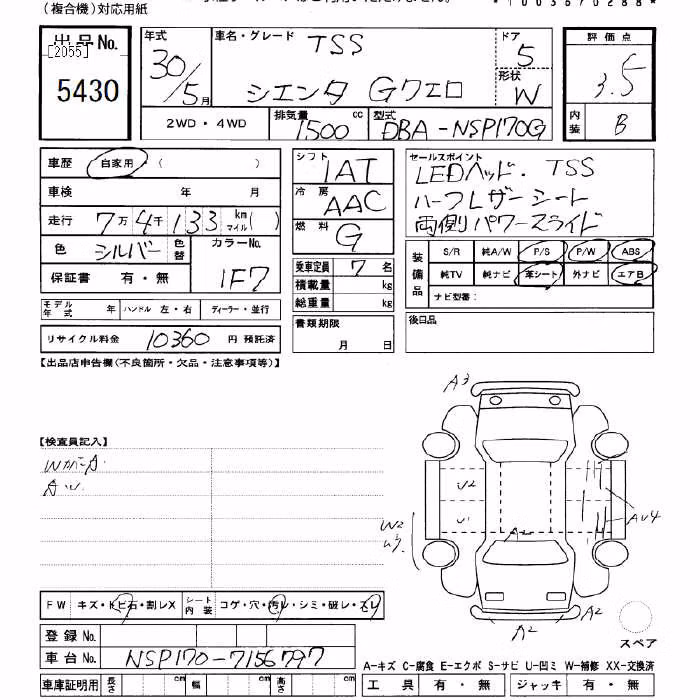 (複合機)対応用紙
出品No.
[2055]
5430
年式
30/5月
車名・グレード TSS
シエンタ Gクエロ
ドア 5
形状 W
評価点
3.5
内装 B
2WD・4WD
排気量 1500 cc
型式 DBA-NSP170G
車歴 自家用 ( )
車検 年 月
走行 7万4千133 km マイル( )
色 シルバー 色替 カラーNo. 1F7
保証書 有・無
モデル年式 年 ハンドル 左・右 ディーラー・並行
リサイクル料金 10360 円 預託済
シフト 1AT
冷房 AAC
燃料 G
乗車定員 7 名
積載量 kg
総重量 kg
書類期限
月 日
セールスポイント
LEDヘッド. TSS
ハーフレザーシート
両側パワースライド
装備品
S/R 純A/W P/S P/W ABS
純TV 純ナビ 革シート 外ナビ エアB
ナビ型番:
後日品
【出品店申告欄(不良箇所・欠品・注意事項等)】
【検査員記入】
A3
U2
U1
W2
AU4
A2
A2
A2
スペア
FW キズ・トビ石・割レX シート内装 コゲ・穴・汚レ・シミ・破レ・スレ
登録No.
車台No. NSP170-7156797
車庫証明用 長さ cm 幅 cm 高さ cm
A-キズ C-腐食 E-エクボ S-サビ U-凹ミ W-補修 XX-交換済
工具 有・無 ジャッキ 有・無